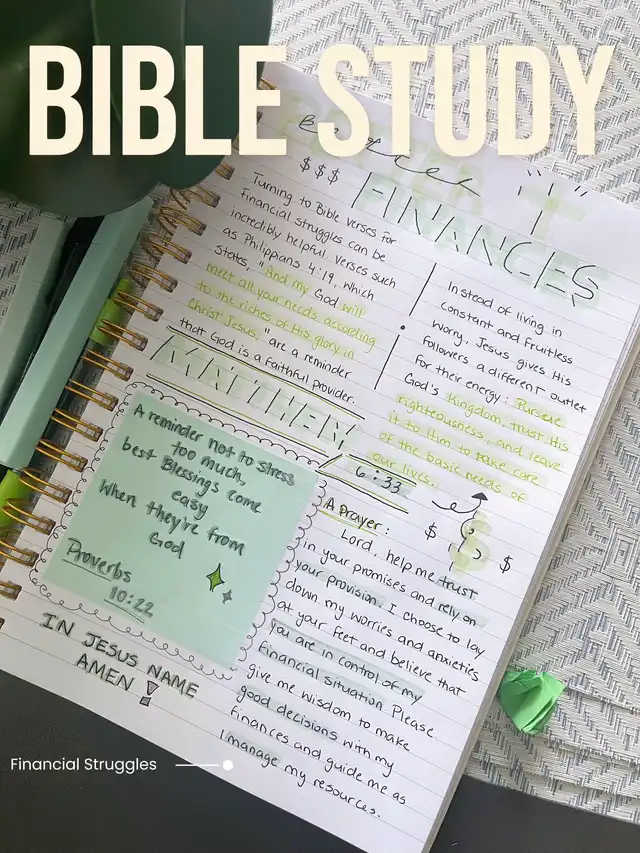 BIBLE STUDY
$ $ $
FINANCES
Turning to Bible verses for
Financial struggles can be
incredibly helpful. Verses such
as Philippians 4:19, which
states, "And my God will
meet all your needs according
to the riches of His glory in
Christ Jesus," are a reminder
that God is a faithful provider.
Instead of living in
constant and fruitless
worry, Jesus gives His
followers a different outlet
for their energy: Pursue
God's Kingdom, trust His
righteousness, and leave
it to Him to take care
of the basic needs of
our lives.
MATTHEW
6:33
A reminder not to stress
too much,
best Blessings come
easy
When they're from
God
Proverbs
10:22
IN JESUS NAME
AMEN!
A Prayer:
Lord, help me trust
in your promises and rely on
your provision. I choose to lay
down my worries and anxieties
at your feet and believe that
you are in control of my
financial situation. Please
give me wisdom to make
good decisions with my
finances and guide me as
I manage my resources.
$ $ $
Financial Struggles